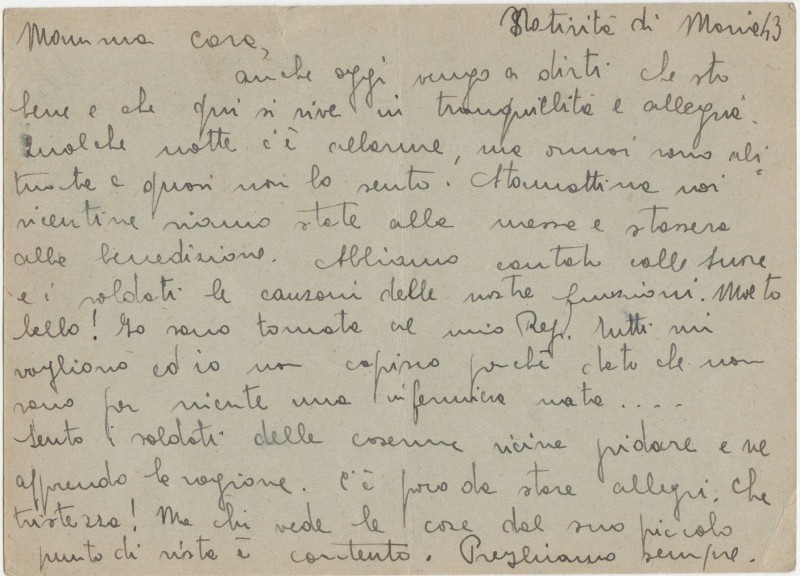 Mamma cara,
Natività di Maria 43
anche oggi vengo a dirti che sto
bene e che qui si vive in tranquillità e allegria.
Qualche notte c'è allarme, ma ormai sono abi-
tuata e quasi non lo sento. Stamattina noi
vicentine siamo state alla messa e stassera
alla benedizione. Abbiamo cantato colle Suore
e i soldati le canzoni delle nostre funzioni. Molto
bello! Io sono tornata al mio Rep. Tutti mi
vogliono ed io non capisco perchè dato che non
sono per niente una infermiera nata.....
Sento i soldati delle caserme vicine gridare e ne
apprendo la ragione. C'è poco da stare allegri. Che
tristezza! Ma chi vede le cose dal suo piccolo
punto di vista è contento. Preghiamo sempre.